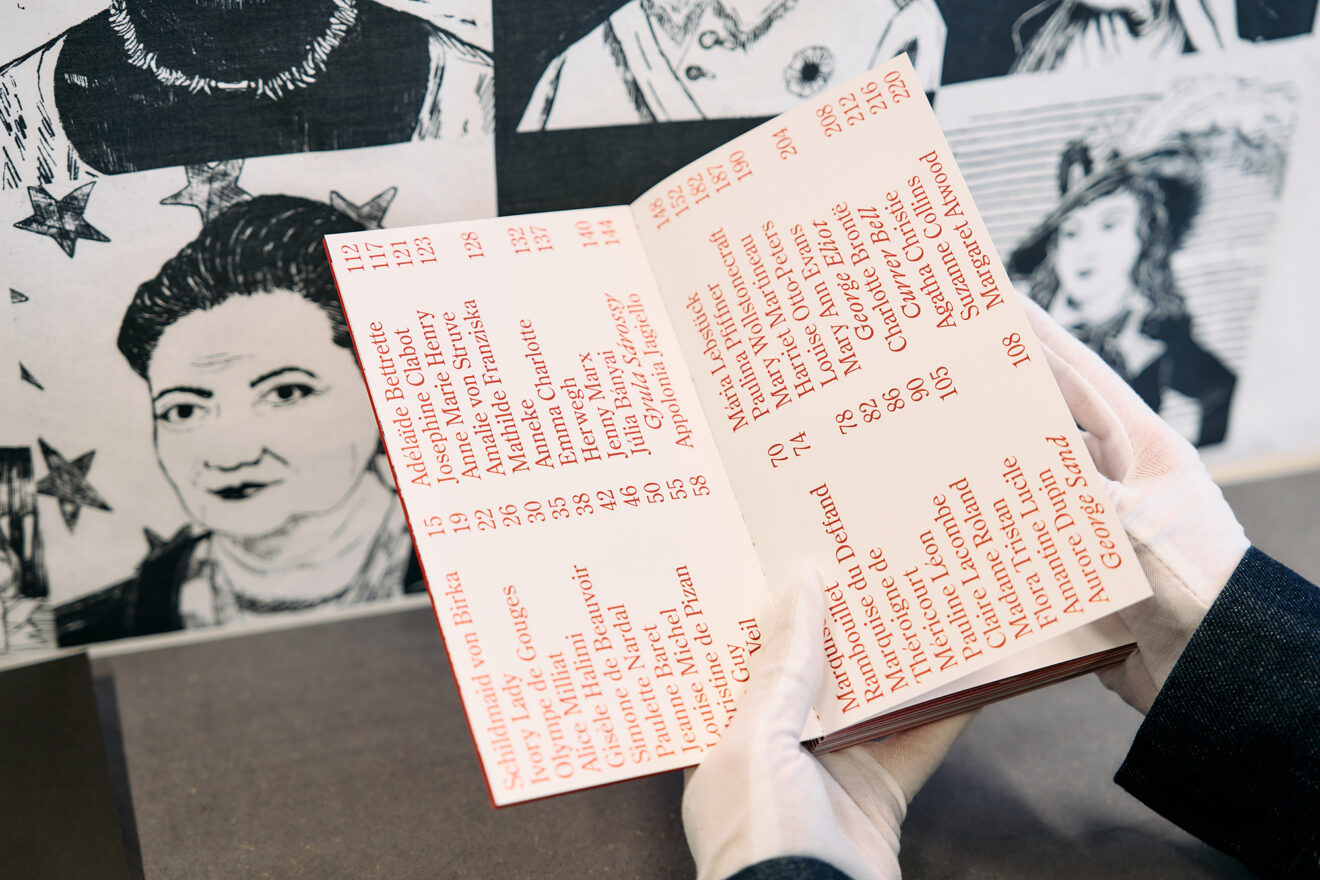 Schildmaid von Birka 15
Ivory Lady 19
Olympe de Gouges 22
Alice Milliat 26
Gisèle Halimi 30
Simone de Beauvoir 35
Paulette Nardal 38
Jeanne Baret 42
Louise Michel 46
istine de Pizan 50
Guy 55
Veil 58
Adélaïde Bettrette 112
Josephine Clabot 117
Marie Henry 121
Amalie von Struve 123
Mathilde Franziska
Anneke 128
Emma Charlotte
Herwegh 132
Jenny Marx 137
Júlia Bányai
Gyula Sárossy 140
Apolonia Jagiello 144
Rambouillet 70
Marquise du Deffand 74
Théroigne de
Méricourt 78
Pauline Léon 82
Claire Lacombe 86
Madame Roland 90
Flora Tristan 105
Amantine Lucile
Aurore Dupin
George Sand 108
Mária Lebstück 148
Paulina Pfiffner 152
Mary Wollstonecraft 182
Harriet Martineau 187
Louise Otto-Peters 190
Mary Ann Evans
George Eliot 204
Charlotte Brontë
Currer Bell 208
Agatha Christie 212
Suzanne Collins 216
Margaret Atwood 220